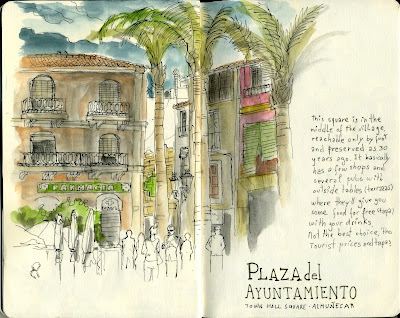 FARMACIA
This square is in the
middle of the village,
reachable only by foot
and preserved as 30
years ago. It basically
has a few shops and
several pubs with
outside tables (terrazas)
where they'll give you
some food for free (tapa)
with your drinks.
Not the best choice, tho
Tourist prices and tapas
PLAZA del
AYUNTAMIENTO
TOWN HALL SQUARE · ALMUÑECAR